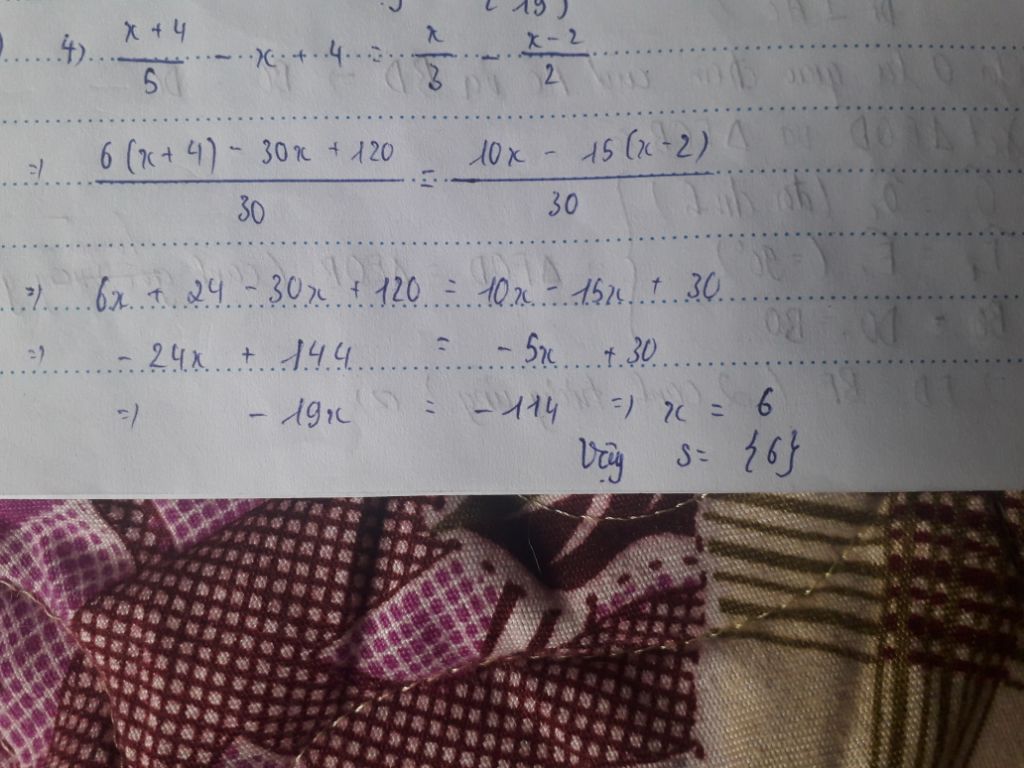 4) (x + 4)/5 - x + 4 = x/3 - (x - 2)/2
=> (6(x + 4) - 30x + 120)/30 = (10x - 15(x - 2))/30
=> 6x + 24 - 30x + 120 = 10x - 15x + 30
=> - 24x + 144 = - 5x + 30
=> - 19x = - 114 => x = 6
Vậy S = {6}